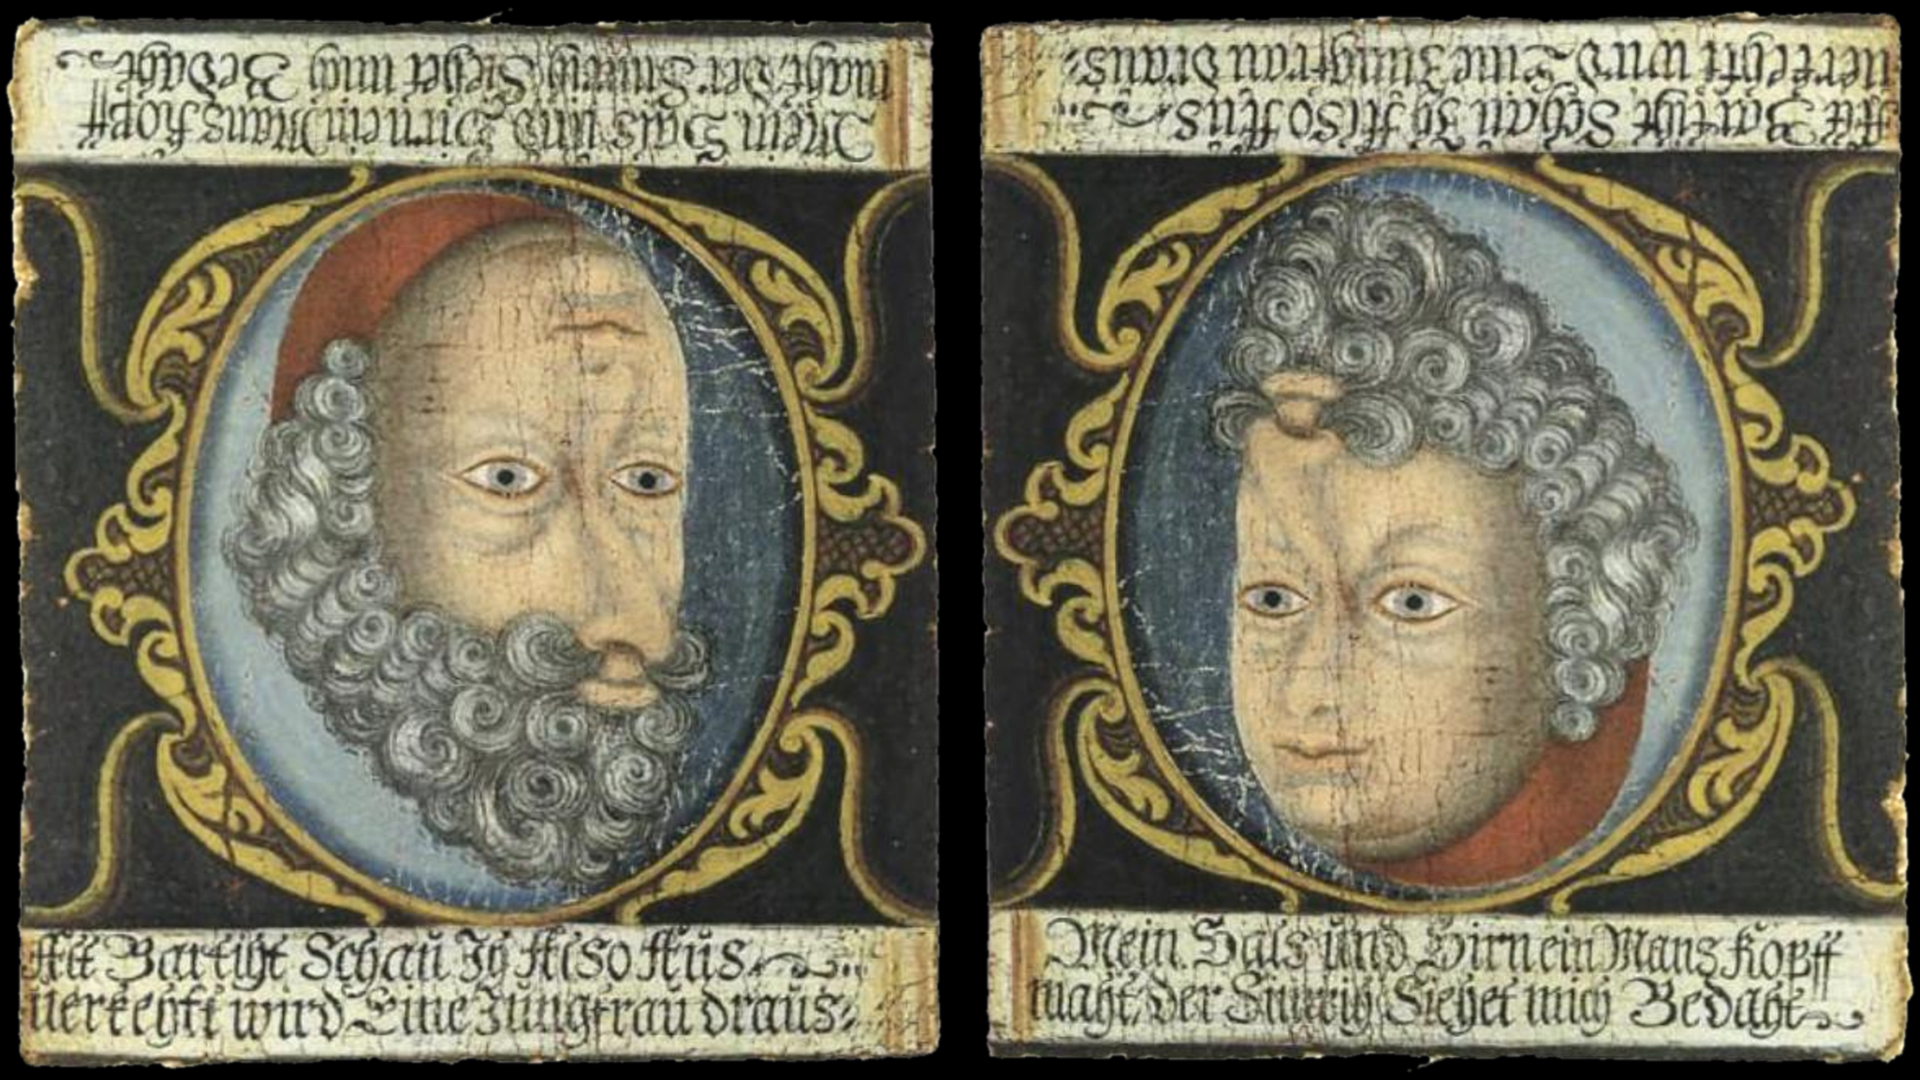 Mein Hals und Hirn ein Mans Kopff
macht Der Sinnrich Siehet mich Bedacht
Alt Barticht Schau Ich Also Aus
verkehrt wird Eine Jungfrau draus
Alt Barticht Schau Ich Also Aus
verkehrt wird Eine Jungfrau draus
Mein Hals und Hirn ein Mans Kopff
macht Der Sinnrich Siehet mich Bedacht